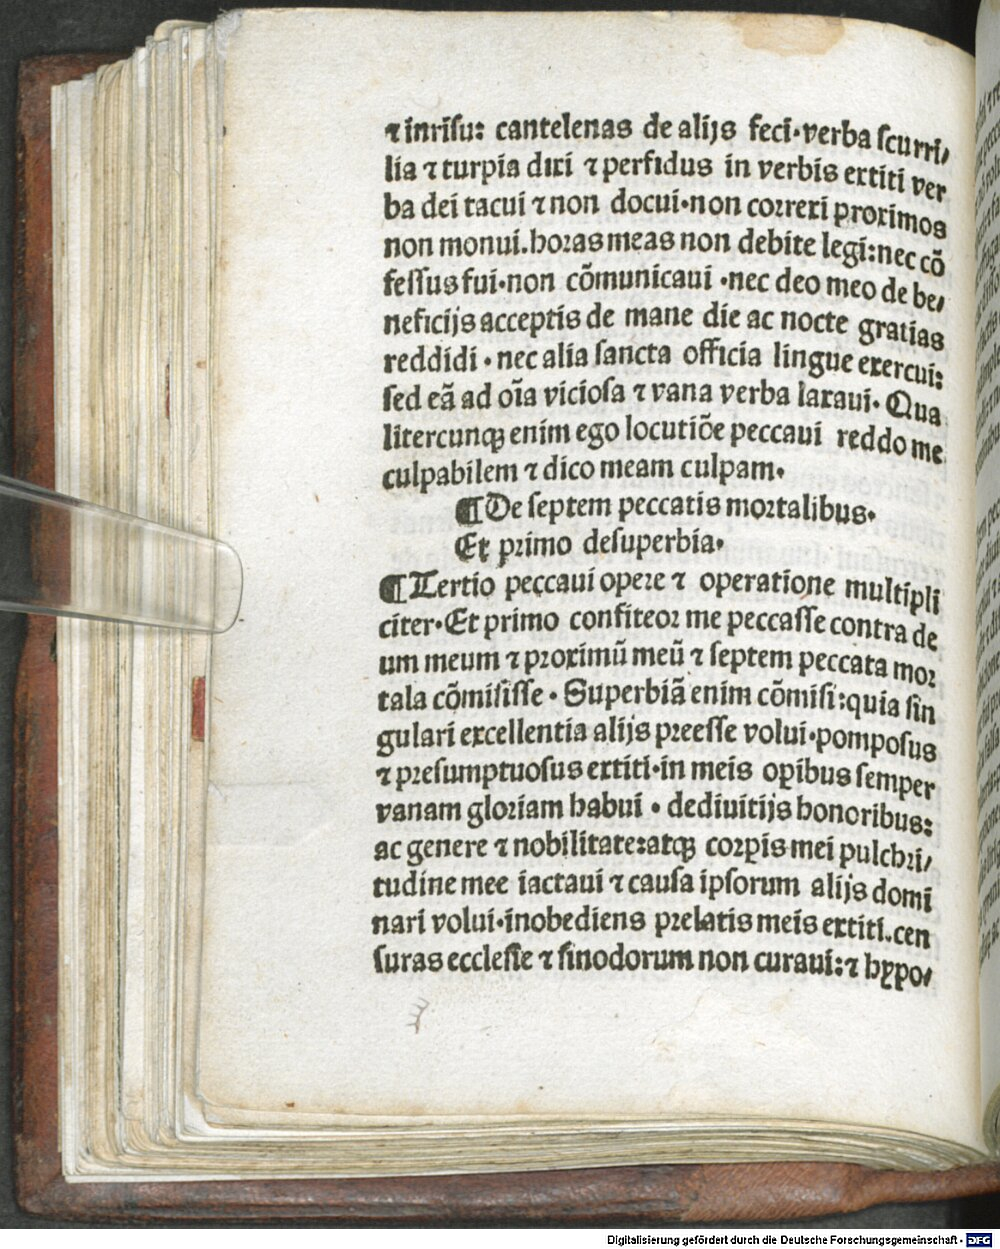 ⁊ inrisu: cantelenas de alijs feci·verba scurri⸗
lia ⁊ turpia dixi ⁊ perfidus in verbis extiti ver
ba dei tacui ⁊ non docui·non correxi proximos
non monui.horas meas non debite legi:nec cō
fessus fui·non cōmunicaui ·nec deo meo de be⸗
neficijs acceptis de mane die ac nocte gratias
reddidi · nec alia sancta officia lingue exercui:
sed eā ad oīa viciosa ⁊ vana verba laxaui· Qua
litercunqꝫ enim ego locutiōe peccaui reddo me
culpabilem ⁊ dico meam culpam·
¶De septem peccatis mortalibus·
Et primo desuperbia·
¶Tertio peccaui opere ⁊ operatione multipli
citer·Et primo confiteor me peccasse contra de
um meum ⁊ proximū meū ⁊ septem peccata mor
tala cōmisisse · Superbiā enim cōmisi:quia sin
gulari excellentia alijs preesse volui·pomposus
⁊ presumptuosus extiti·in meis oꝑibus semper
vanam gloriam habui · dediuitijs honoribus:
ac genere ⁊ nobilitate:atqꝫ corꝑis mei pulchri⸗
tudine mee iactaui ⁊ causa ipsorum alijs domi
nari volui·inobediens prelatis meis extiti.cen
suras ecclesie ⁊ sinodorum non curaui:⁊ hypo⸗
Digitalisierung gefördert durch die Deutsche Forschungsgemeinschaft - DFG